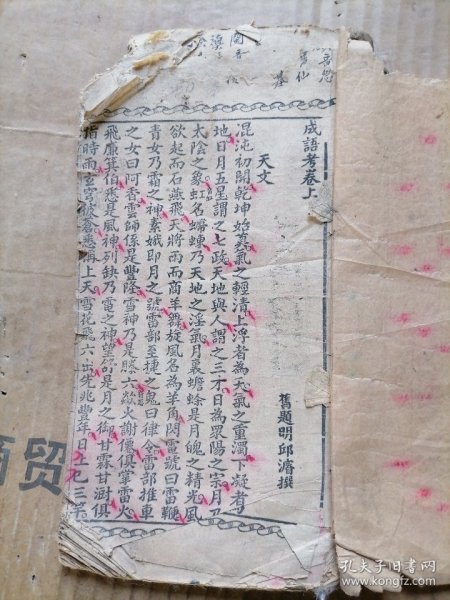 成語考卷上
舊題明邱濬撰
天文
混沌初開乾坤始奠氣之輕清上浮者為天氣之重濁下凝者
地日月五星謂之七政天地與人謂之三才日為眾陽之宗月乃
太陰之象虹名螮蝀乃天地之淫氣月裏蟾蜍是月魄之精光風
欲起而石燕飛天將雨而商羊舞旋風名為羊角閃電號曰雷鞭
青女乃霜之神素娥即月之號雷部至捷之鬼曰律令雷部推車
之女曰阿香雲師係是豐隆雪神乃是滕六歘火謝僊俱掌雷火
飛廉箕伯悉是風神列缺乃電之神望舒是月之御甘霖甘澍俱
指時雨玄穹彼蒼悉稱上天雪花飛六出先兆豐年日上已三竿
商贸
孔夫子旧书网
www.kongfz.com